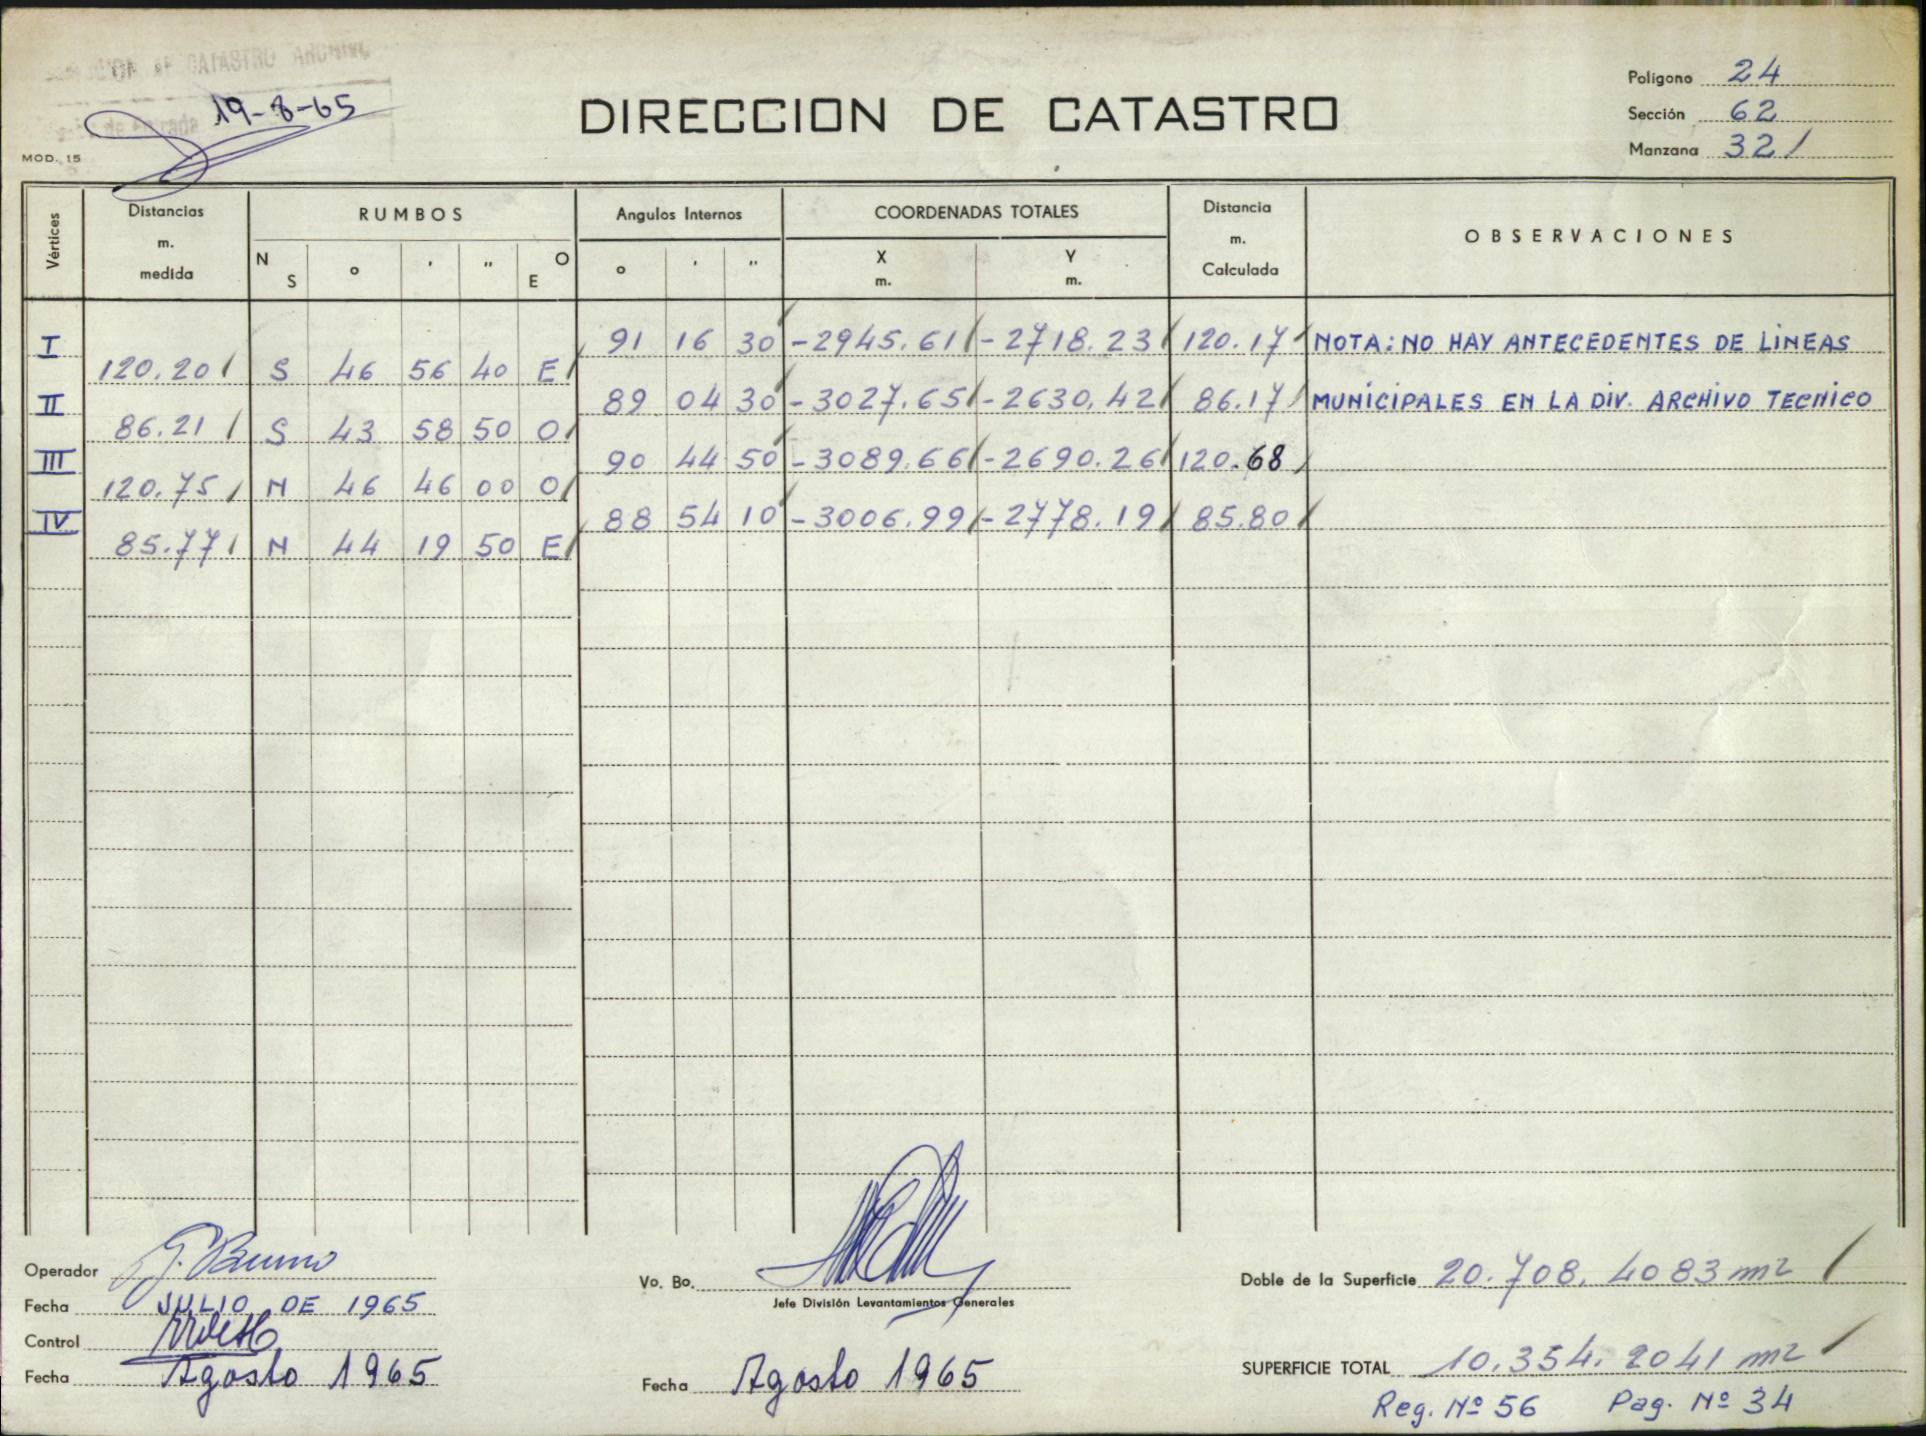 CATASTRO ARCHIVO
19-8-65
DIRECCION DE CATASTRO
MOD. 15
Poligono 24
Sección 62
Manzana 321
Vértices
Distancias m. medida
RUMBOS
N S ° ' " O E
Angulos Internos
° ' "
COORDENADAS TOTALES
X m. Y m.
Distancia m. Calculada
OBSERVACIONES
I 91 16 30 -2945.61 -2718.23 120.17 NOTA: NO HAY ANTECEDENTES DE LINEAS
120.20 S 46 56 40 E
II 89 04 30 -3027.65 -2630.42 86.17 MUNICIPALES EN LA DIV. ARCHIVO TECNICO
86.21 S 43 58 50 O
III 90 44 50 -3089.66 -2690.26 120.68
120.75 N 46 46 00 O
IV 88 54 10 -3006.99 -2778.19 85.80
85.77 N 44 19 50 E
Operador G. Bruno
Fecha JULIO DE 1965
Control
Fecha Agosto 1965
Vo. Bo.
Jefe División Levantamientos Generales
Fecha Agosto 1965
Doble de la Superficie 20.708.4083 m2
SUPERFICIE TOTAL 10.354.2041 m2
Reg. Nº 56 Pag. Nº 34